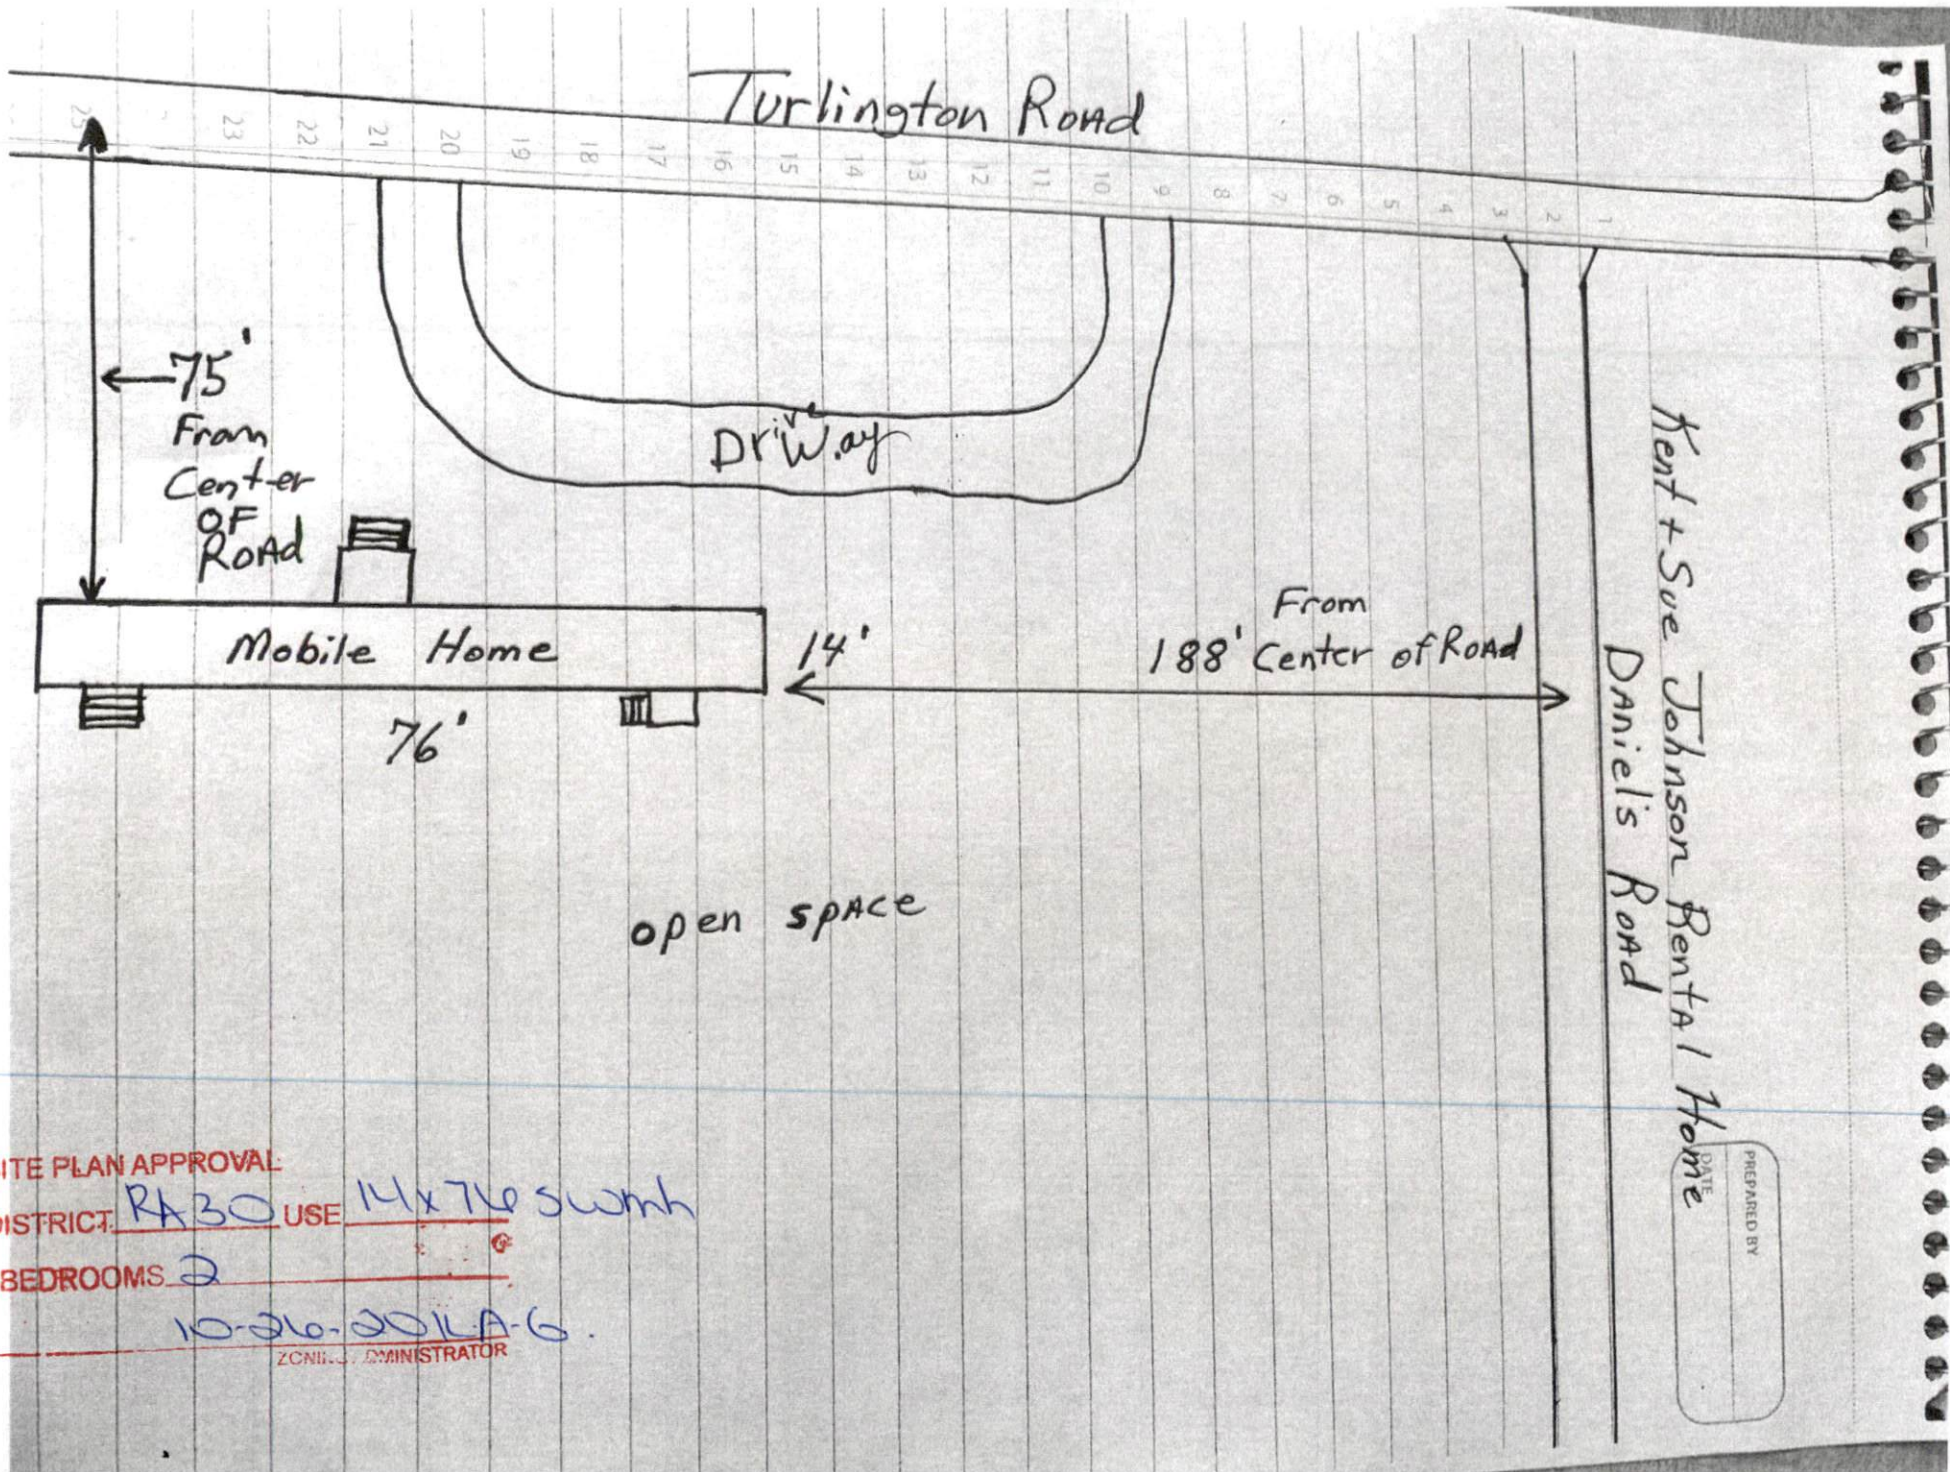 Turlington Road
25
23
22
21
20
19
18
17
16
15
14
13
12
11
10
9
8
7
6
5
4
3
2
1
75'
From
Center
OF
ROAD
Driveway
Mobile Home
14'
From
188' Center of ROAD
76'
open space
Kent + Sue Johnson Rental Home
DAniel's ROAD
PREPARED BY
DATE
ITE PLAN APPROVAL
DISTRICT RA30 USE 14x76 swmh
BEDROOMS 2
ADMINISTRATOR